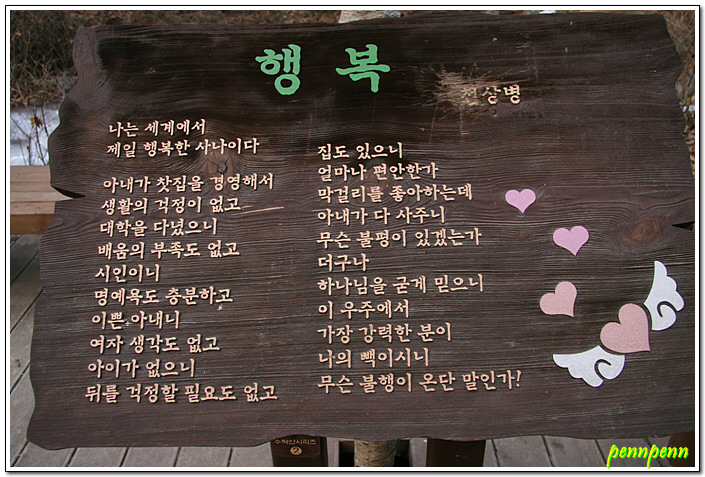 행복
천상병
나는 세계에서
제일 행복한 사나이다
아내가 찻집을 경영해서
생활의 걱정이 없고
대학을 다녔으니
배움의 부족도 없고
시인이니
명예욕도 충분하고
이쁜 아내니
여자 생각도 없고
아이가 없으니
뒤를 걱정할 필요도 없고
집도 있으니
얼마나 편안한가
막걸리를 좋아하는데
아내가 다 사주니
무슨 불평이 있겠는가
더구나
하나님을 굳게 믿으니
이 우주에서
가장 강력한 분이
나의 빽이시니
무슨 불행이 온단 말인가!
수락산시리즈
2
pennpenn